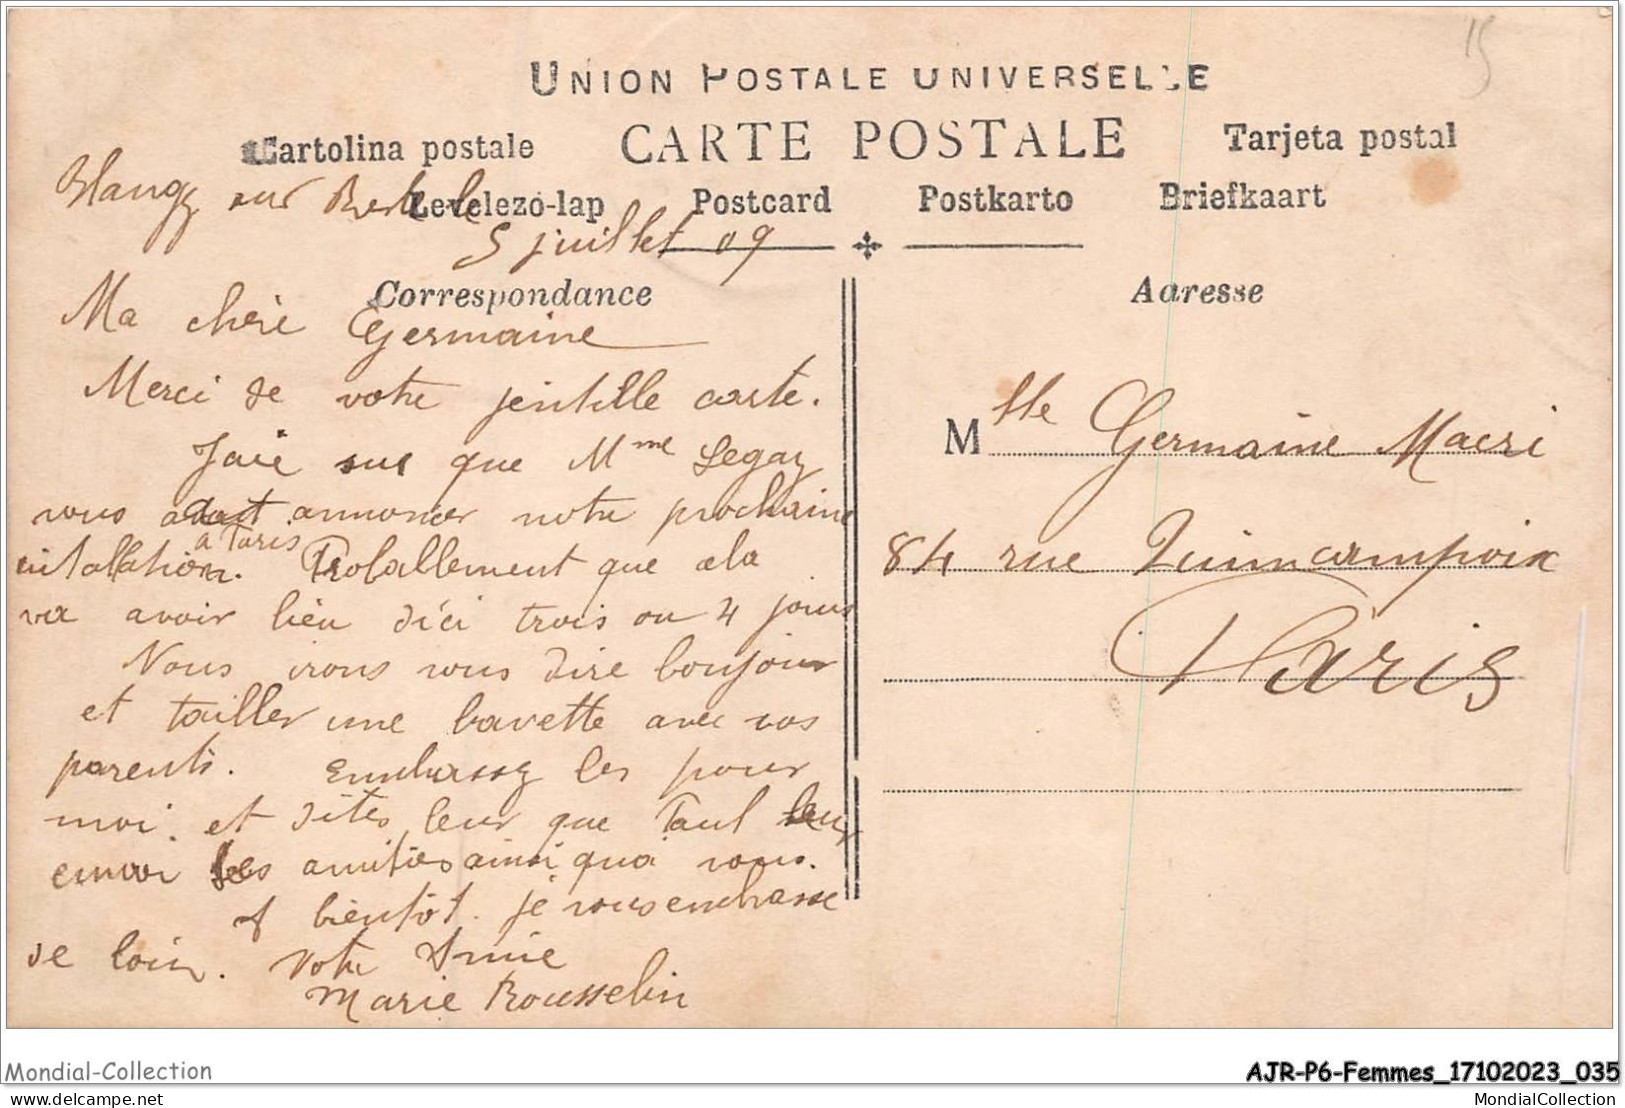 15
UNION POSTALE UNIVERSELLE
Cartolina postale CARTE POSTALE Tarjeta postal
Levelezo-lap Postcard Postkarto Briefkaart
Blangy sur
5 juillet 09
Correspondance
Ma chère Germaine
Merci de votre jentille carte.
Jaie sus que Mme Legay
vous avait annoncer notre prochaine
intallation à Paris. Proballement que cela
va avoir lieu d'éci trois ou 4 jours
Nous irons vous dire boujour
et tailler une bavette avec vos
parents. Embrassez les pour
moi. et dites leur que Paul leur
envoi ses amitiés ainsi qua vous.
A bientôt. je vous embrasse
de loin. Votre Amie
Marie Rousselin
Adresse
Mlle Germaine Macri
84 rue Quincampoix
Paris
Mondial-Collection
delcampe.net
AJR-P6-Femmes_17102023_035
MondialCollection